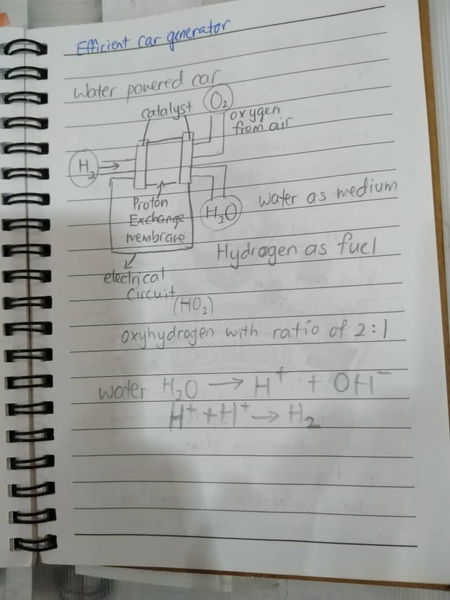 Efficient car generator
Water powered car
catalyst
O₂
oxygen
from air
H₂
Proton
Exchange
membrane
H₂O
water as medium
Hydrogen as fuel
electrical
circuit
(HO₂)
oxyhydrogen with ratio of 2:1
water H₂O → H⁺ + OH⁻
H⁺ + H⁺ → H₂